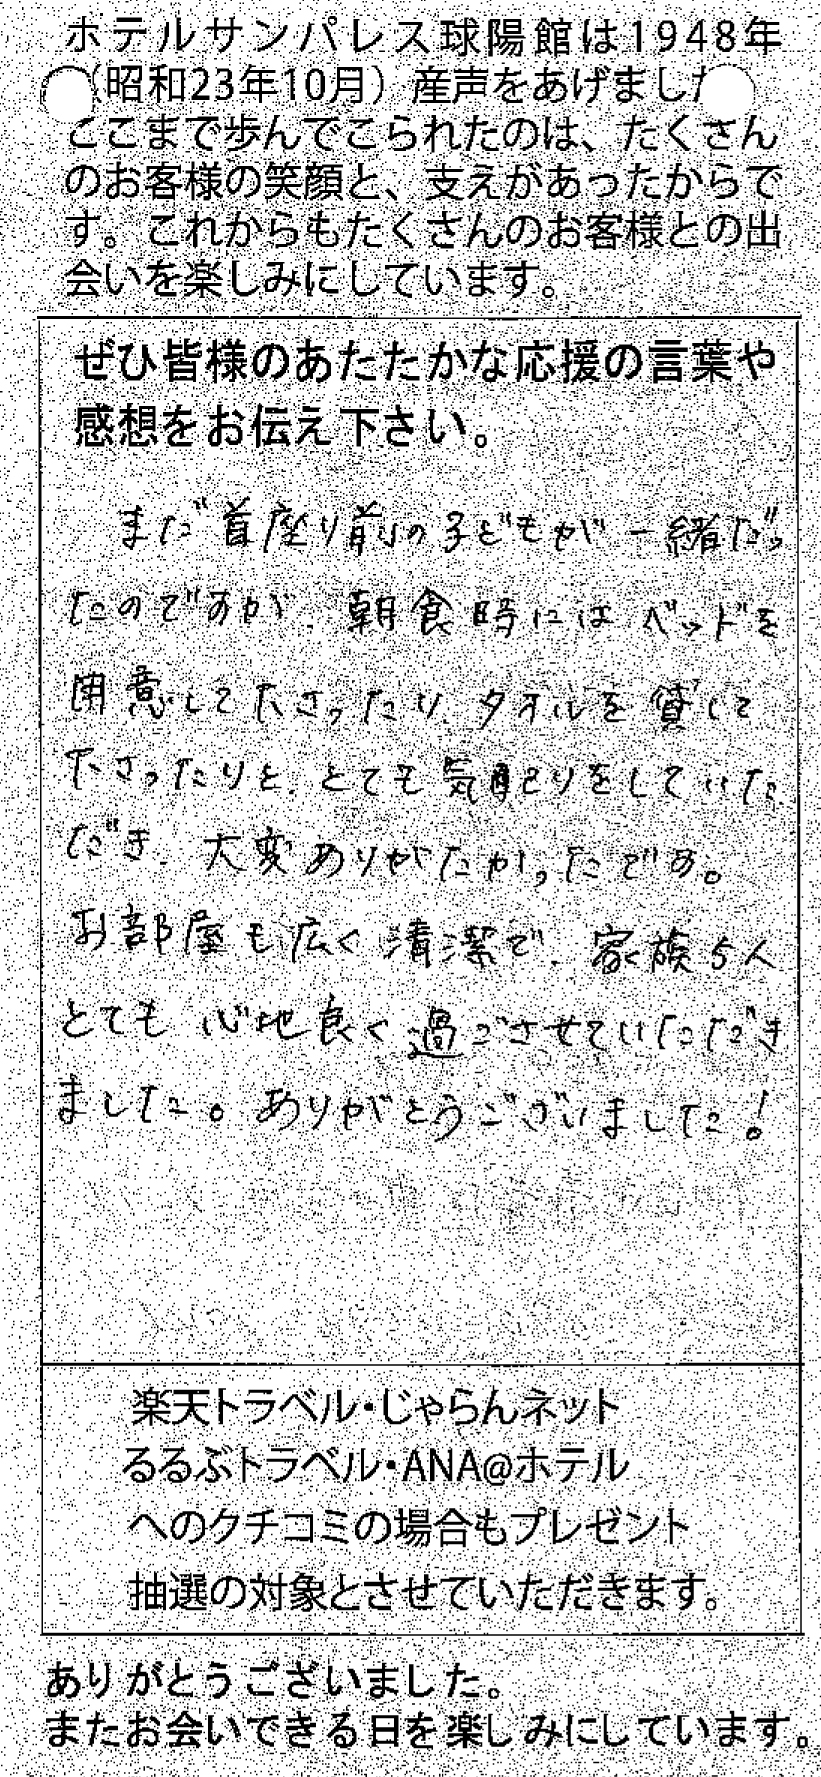 ホテルサンパレス球陽館は1948年
（昭和23年10月）産声をあげました
ここまで歩んでこられたのは、たくさん
のお客様の笑顔と、支えがあったからで
す。これからもたくさんのお客様との出
会いを楽しみにしています。
ぜひ皆様のあたたかな応援の言葉や
感想をお伝え下さい。
まだ首座り前の子どもが一緒だっ
たのですが、朝食時にはベッドを
用意して下さったり、タオルを貸して
下さったりと、とても気配りをしていた
だき、大変ありがたかったです。
お部屋も広く清潔で、家族5人
とても心地良く過ごさせていただき
ました。ありがとうございました!
楽天トラベル・じゃらんネット
るるぶトラベル・ANA@ホテル
へのクチコミの場合もプレゼント
抽選の対象とさせていただきます。
ありがとうございました。
またお会いできる日を楽しみにしています。